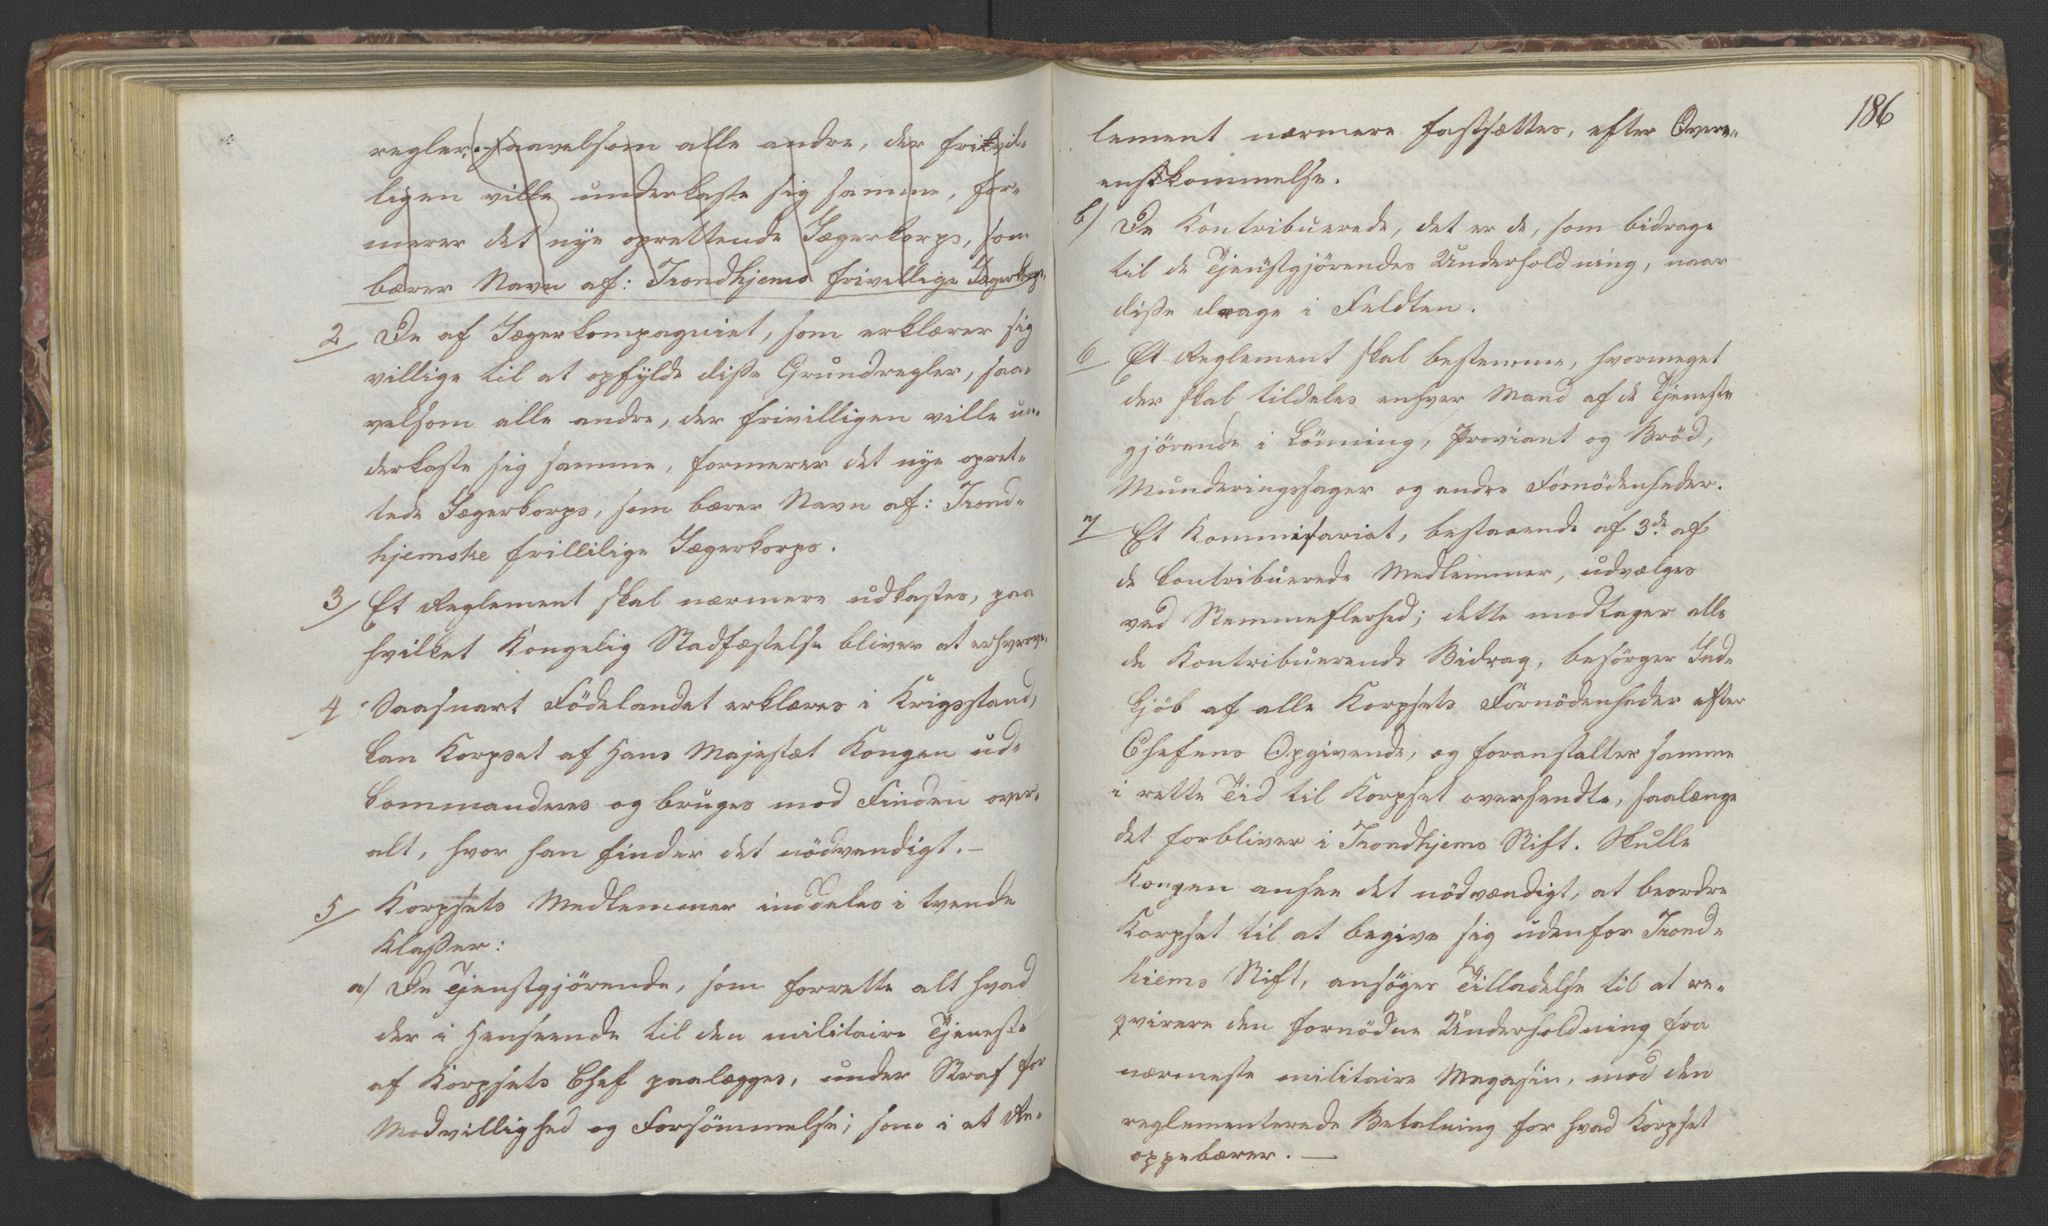 regler, saavelsom alle andre, der frivil-
ligen ville underkaste sig samme, for-
merer det nye oprettende Jægerkorps, som
bærer Navn af: Trondhjems frivillige Jægerkorps.
2 De af Jægerkompagniet, som erklærer sig
villige til at opfylde disse Grundregler, saa-
velsom alle andre, der frivilligen ville un-
derkaste sig samme, formerer det nye opret-
tede Jægerkorps, som bærer Navn af: Trond-
hjemske frillilige Jægerkorps.
3 Et Reglement skal nærmere udkastes, paa
hvilket Kongelig Stadfæstelse bliver at erhverve.
4 Saasnart Födelandet erklæres i Krigsstand,
kan Korpset af Hans Majestæt Kongen ud-
kommanderes og bruges mod Finden over-
alt, hvor han finder det nödvendigt. –
5 Korpsets Medlemmer inddeles i tvende
Klasser:
a) De Tjenstgjörende, som forrette alt hvad
der i Henseende til den militaire Tjeneste
af Korpsets Chef paalægges, under Straf for
Modvillighed og Forsömmelse; som i et Re-
186
lement nærmere fastsættes, efter Overe-
enskommelse.
b) De Kontribuerede, det er de, som bidrage
til de Tjenstgjörendes Underholdning, naar
disse drage i Feldten.
6 Et Reglement skal bestemme, hvormeget
der skal tildeles enhver Mand af de Tjeneste
gjörende i Lönning, Proviant og Bröd,
Munderingssager og andre Fornödenheder.
7 Et Kommisariat, bestaaende af 3de af
de kontribuerede Medlemmer, udvælges
ved Stemmeflerhed; dette modtager alle
de Kontribuerende Bidrag, besörger Ind-
kjöb af alle Korpsets Fornödenheder efter
Chefens Opgivende, og foranstalter samme
i rette Tid til Korpset oversendte, saalænge
det forbliver i Trondhjems Stift. Skulle
Kongen ansee det nödvændigt, at beordre
Korpset til at begive sig udenfor Trond-
hiems Stift, ansöges Tilladelse til at re-
qvirere den fornödne Underholdning fra
nærmeste militaire Magasin, mod den
reglementerede Betalning for hvad Korpset
oppebærer. —